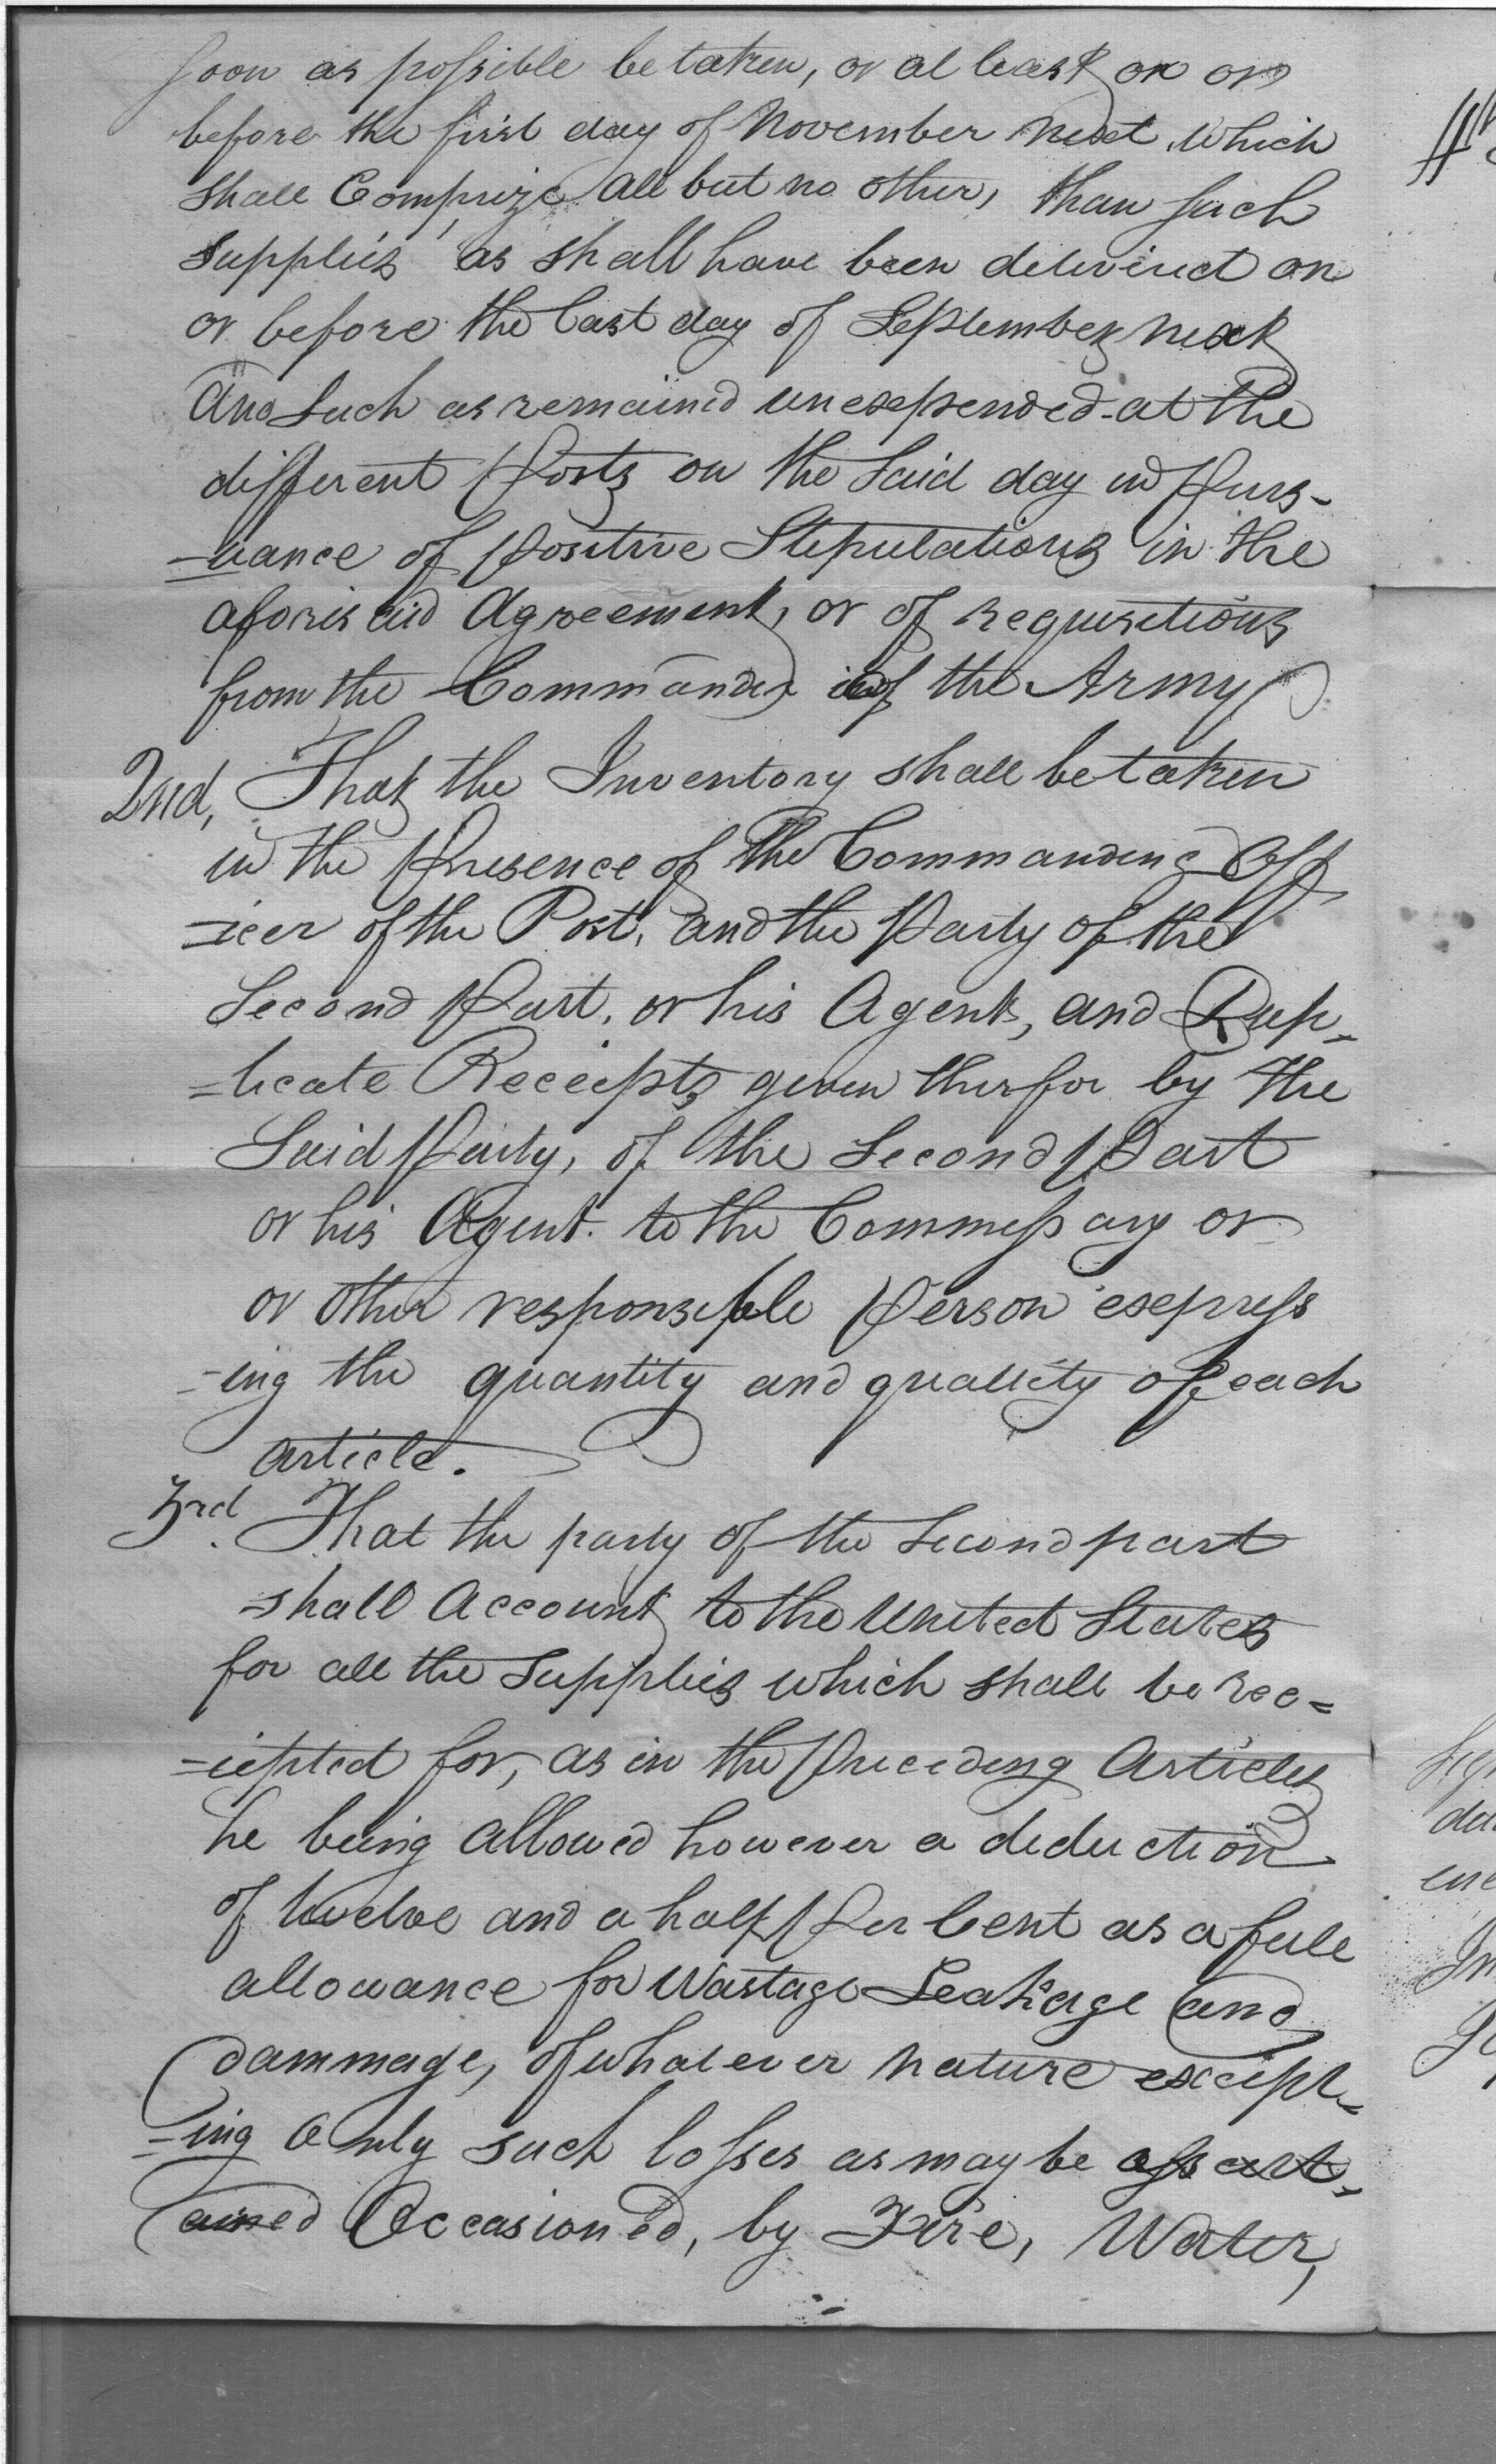 soon as possible be taken, or at least on or
before the first day of November next, which
shall Comprize all but no other, than such
supplies as shall have been delivered on
or before the last day of September next
And Such as remained unexpended at the
different Posts on the Said day in Purs-
-uance of Positive Stipulations in the
aforisaid Agreement, or of requisitions
from the Commander of the Army
2nd, That the Inventory shall be taken
in the Presence of the Commanding Off
-icer of the Post, and the Party of the
Second Part, or his Agent, and Dup-
=licate Receipts given therfor by the
Said Party, of the Second Part
or his Agent. to the Commissary or
or other responsible Person express
-ing the quantity and quality of each
article.
3rd. That the party of the Second part
shall Account to the United States
for all the Supplies which shall be rec=
=iepted for, as in the Preceding Articles
he being allowed however a deduction
of twelve and a half Per Cent as a full
allowance for Wastage Leakage and
dammage, of whatever nature except=
=ing Only such losses as may be assert=
ained Occasioned, by Fire, Water,